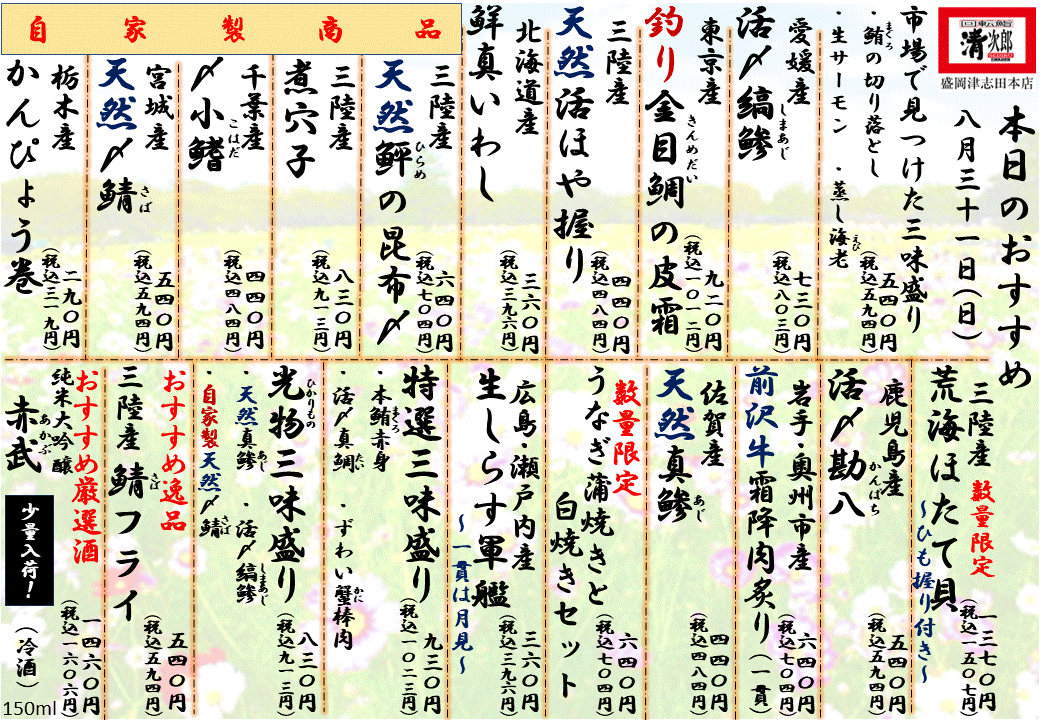 回転鮨
清次郎
盛岡津志田本店
本日のおすすめ
八月三十一日(日)
市場で見つけた三味盛り
・鮪の切り落とし
まぐろ
・生サーモン ・蒸し海老
えび
五四〇円
(税込五九四円)
愛媛産
活〆縞鯵
しまあじ
七三〇円
(税込八〇三円)
東京産
釣り金目鯛の皮霜
きんめだい
九二〇円
(税込一〇一二円)
三陸産
天然活ほや握り
四四〇円
(税込四八四円)
北海道産
鮮真いわし
三六〇円
(税込三九六円)
自家製商品
三陸産
天然鮃の昆布〆
ひらめ
六四〇円
(税込七〇四円)
三陸産
煮穴子
八三〇円
(税込九一三円)
千葉産
〆小鰭
こはだ
四四〇円
(税込四八四円)
宮城産
天然〆鯖
さば
五四〇円
(税込五九四円)
栃木産
かんぴょう巻
二九〇円
(税込三一九円)
三陸産
数量限定
荒海ほたて貝
~ひも握り付き~
一三七〇円
(税込一五〇七円)
鹿児島産
活〆勘八
かんぱち
五四〇円
(税込五九四円)
岩手・奥州市産
前沢牛霜降肉炙り(一貫)
六四〇円
(税込七〇四円)
佐賀産
天然真鯵
あじ
四四〇円
(税込四八四円)
数量限定
うなぎ蒲焼きと
白焼きセット
六四〇円
(税込七〇四円)
広島・瀬戸内産
生しらす軍艦
~一貫は月見~
三六〇円
(税込三九六円)
特選三味盛り
・本鮪赤身
まぐろ
・活〆真鯛 ・ずわい蟹棒肉
たい
かに
九三〇円
(税込一〇二三円)
光物三味盛り
ひかりもの
・天然真鯵 ・活〆縞鯵
あじ
しまあじ
・自家製天然〆鯖
さば
八三〇円
(税込九一三円)
おすすめ逸品
三陸産 鯖フライ
さば
五四〇円
(税込五九四円)
おすすめ厳選酒
純米大吟醸
赤武
あかぶ
少量入荷!
(冷酒)
一四六〇円
(税込一六〇六円)
150ml